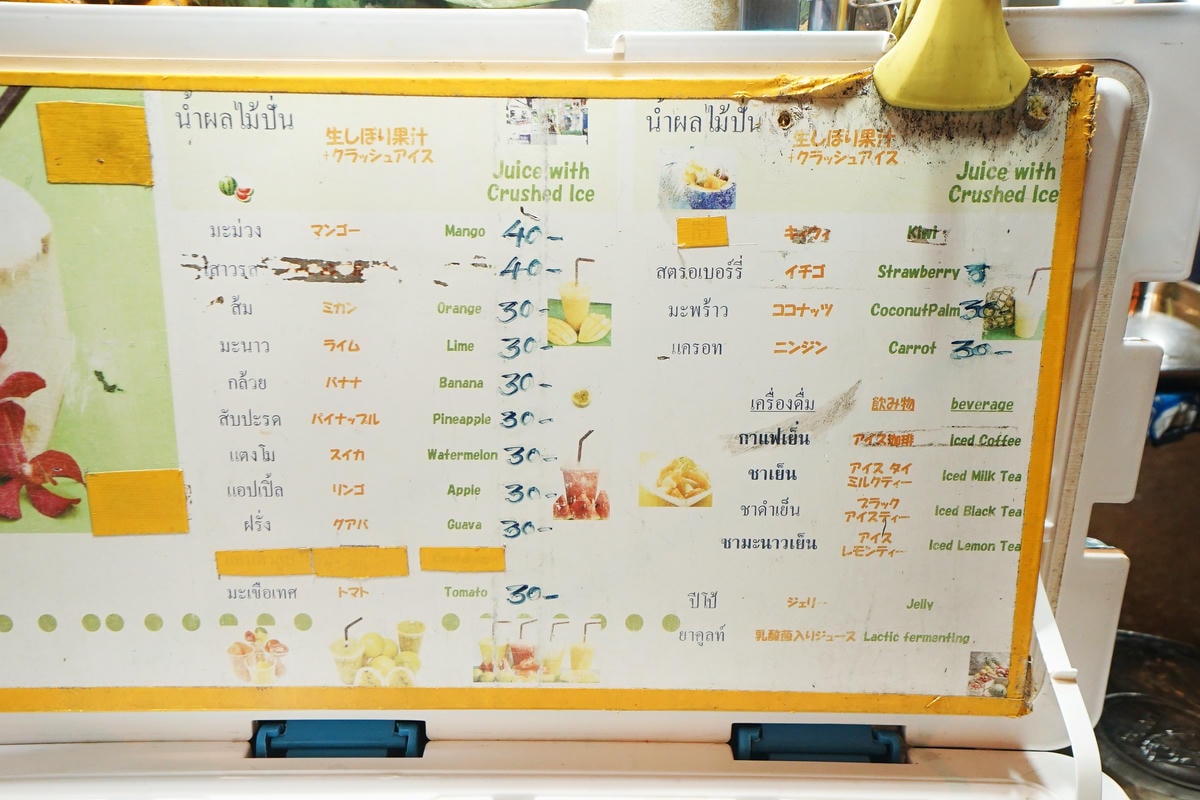 น้ำผลไม้ปั่น
生しぼり果汁
+クラッシュアイス
Juice with
Crushed Ice
มะม่วง マンゴー Mango 40-
เสาวรส 40-
ส้ม ミカン Orange 30-
มะนาว ライム Lime 30-
กล้วย バナナ Banana 30-
สับปะรด パイナップル Pineapple 30-
แตงโม スイカ Watermelon 30-
แอปเปิ้ล リンゴ Apple 30-
ฝรั่ง グアバ Guava 30-
มะเขือเทศ トマト Tomato 30-
น้ำผลไม้ปั่น
生しぼり果汁
+クラッシュアイス
Juice with
Crushed Ice
キウィ Kiwi
สตรอเบอร์รี่ イチゴ Strawberry
มะพร้าว ココナッツ CoconutPalm 30
แครอท ニンジン Carrot 30-
เครื่องดื่ม 飲み物 beverage
กาแฟเย็น アイス珈琲 Iced Coffee
ชาเย็น アイス タイ ミルクティー Iced Milk Tea
ชาดำเย็น ブラック アイスティー Iced Black Tea
ชามะนาวเย็น アイス レモンティー Iced Lemon Tea
ปีโป้ ジェリー Jelly
ยาคูลท์ 乳酸菌入りジュース Lactic fermenting